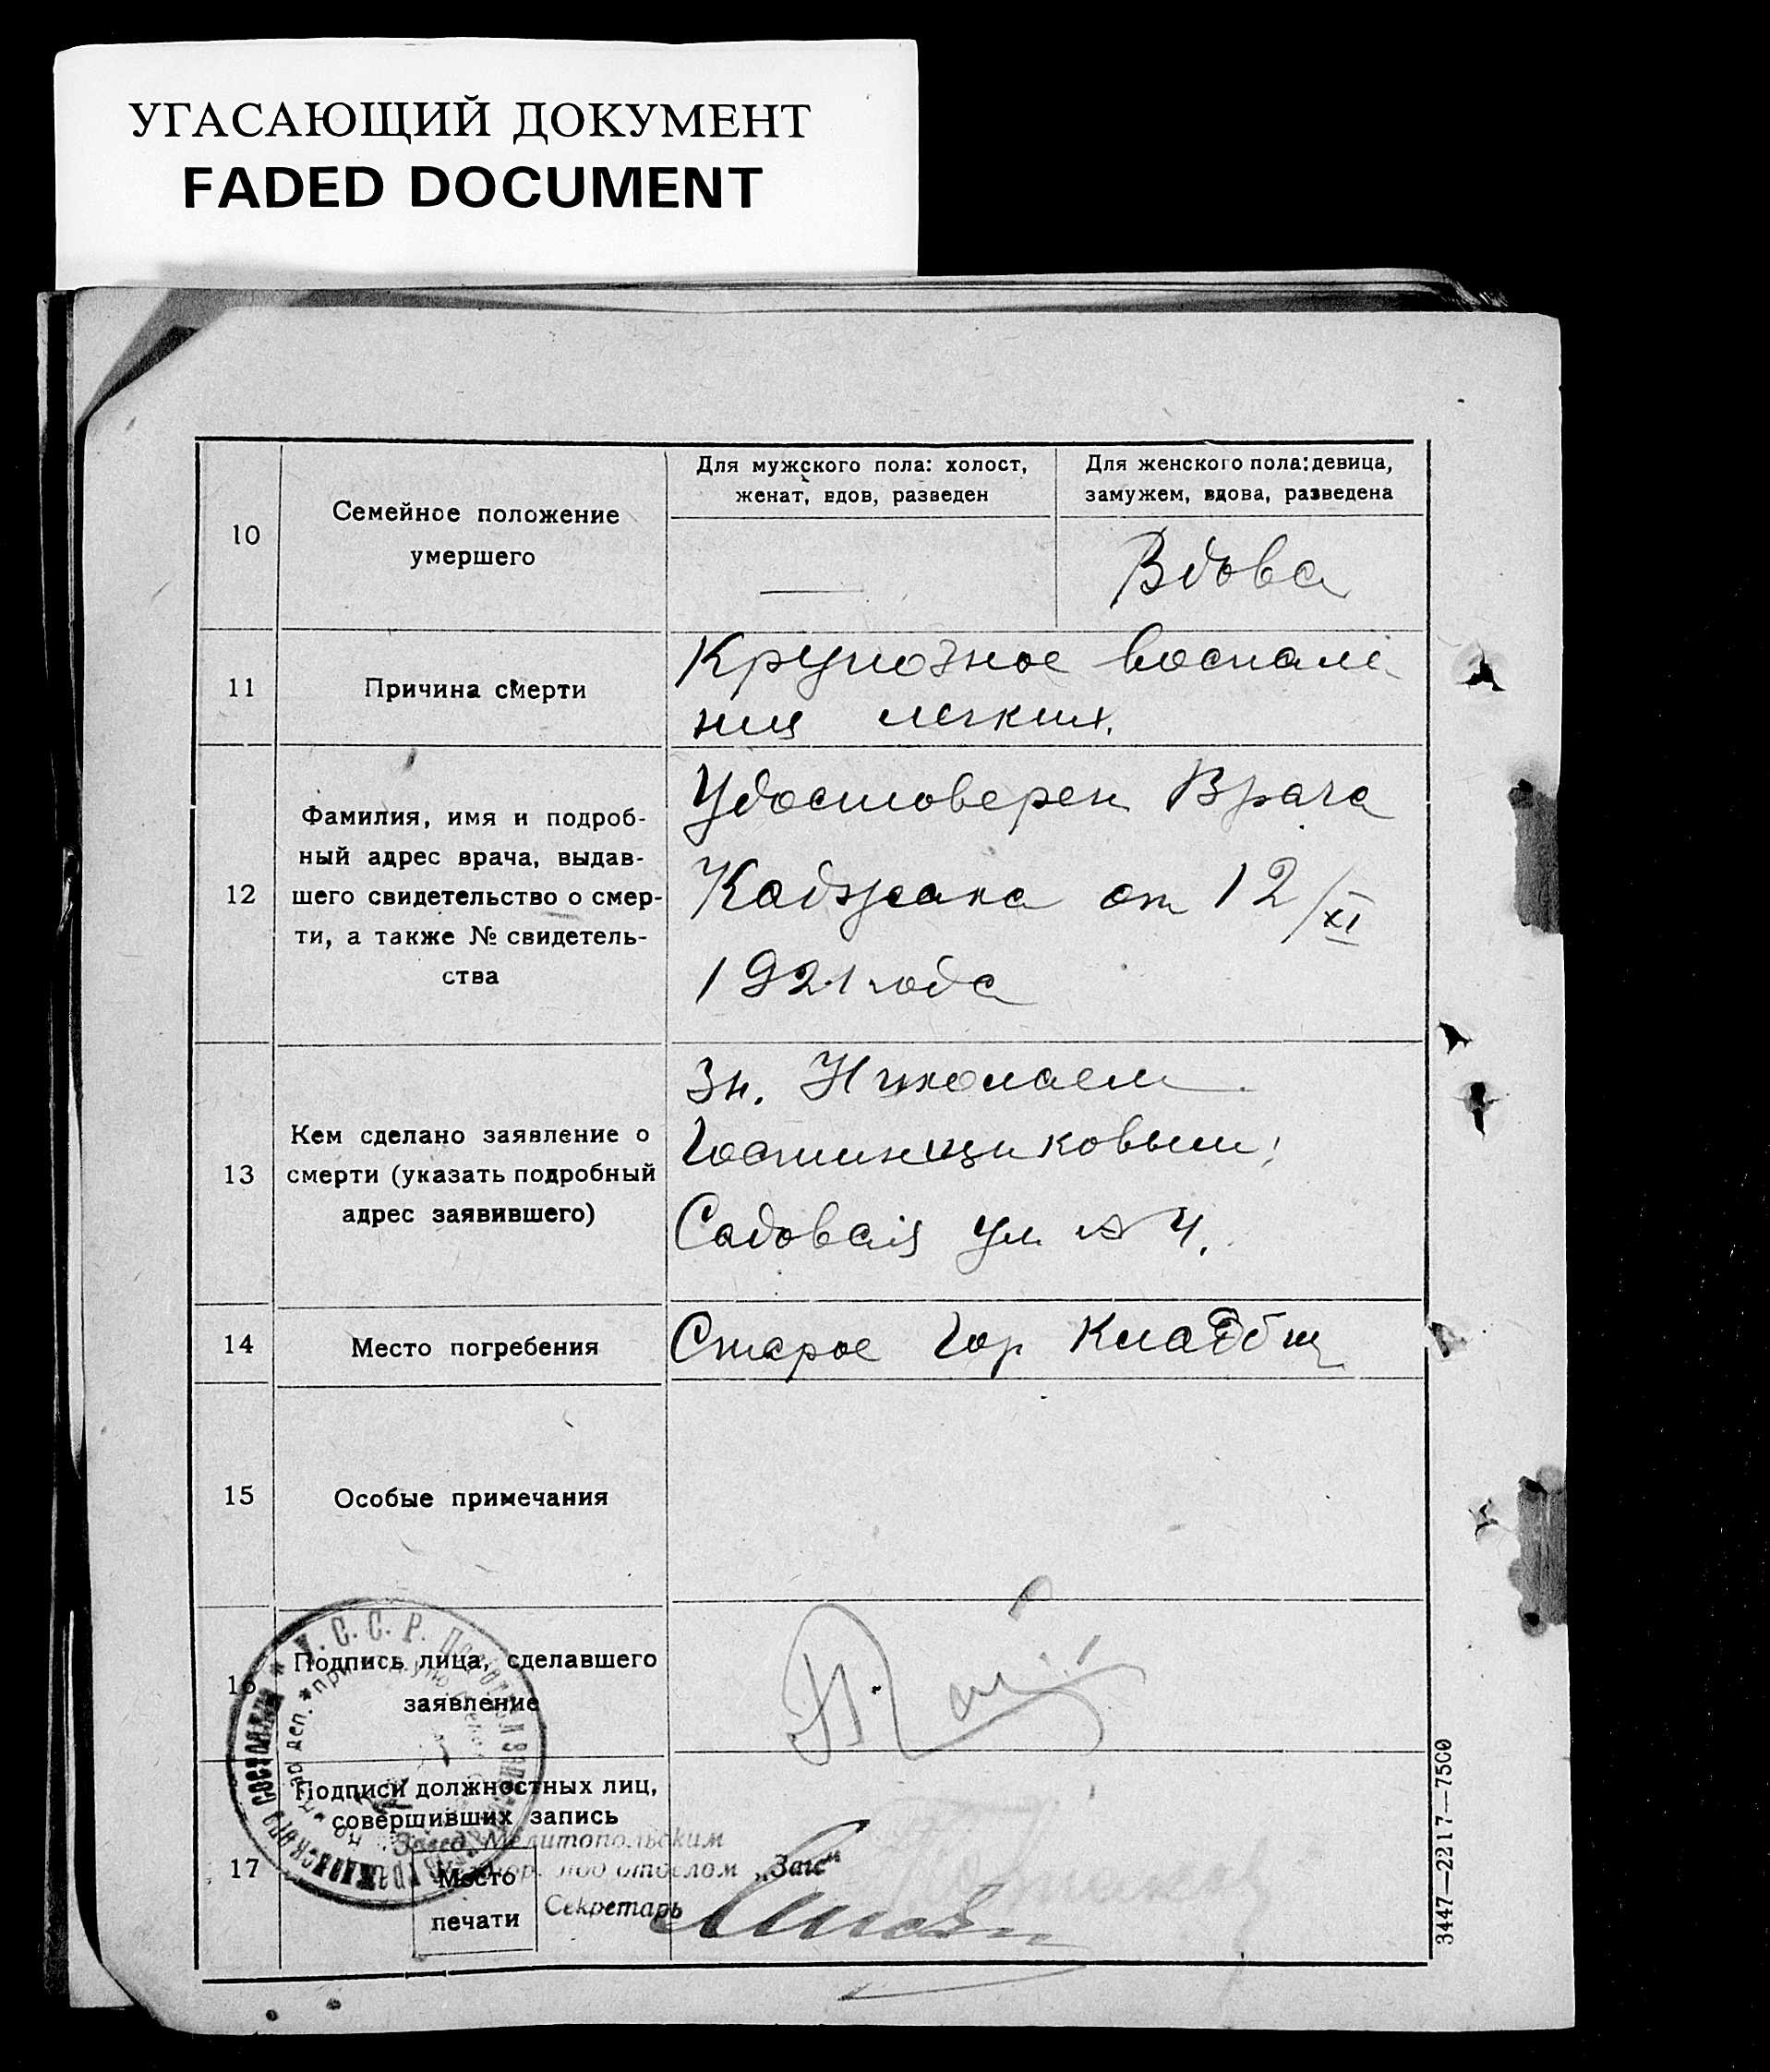 УГАСАЮЩИЙ ДОКУМЕНТ
FADED DOCUMENT
10
Семейное положение
умершего
Для мужского пола: холост,
женат, вдов, разведен
Для женского пола: девица,
замужем, вдова, разведена
Вдова
11
Причина смерти
Крупозное воспале
ния легких.
12
Фамилия, имя и подроб-
ный адрес врача, выдав-
шего свидетельство о смер-
ти, а также № свидетель-
ства
Удостоверен Врача
от 12/XI
1921 года
13
Кем сделано заявление о
смерти (указать подробный
адрес заявившего)
Зн. Николаем
Гостинщиковым;
Садовая ул № 4.
14
Место погребения
Старое Гор Кладбищ
15
Особые примечания
16
Подпись лица, сделавшего
заявление
17
Подписи должностных лиц,
совершивших запись
Завед. Мелитопольским
под отделом „Загс“
Секретарь
Место
печати
У.С.С.Р.
3447—2217—7500